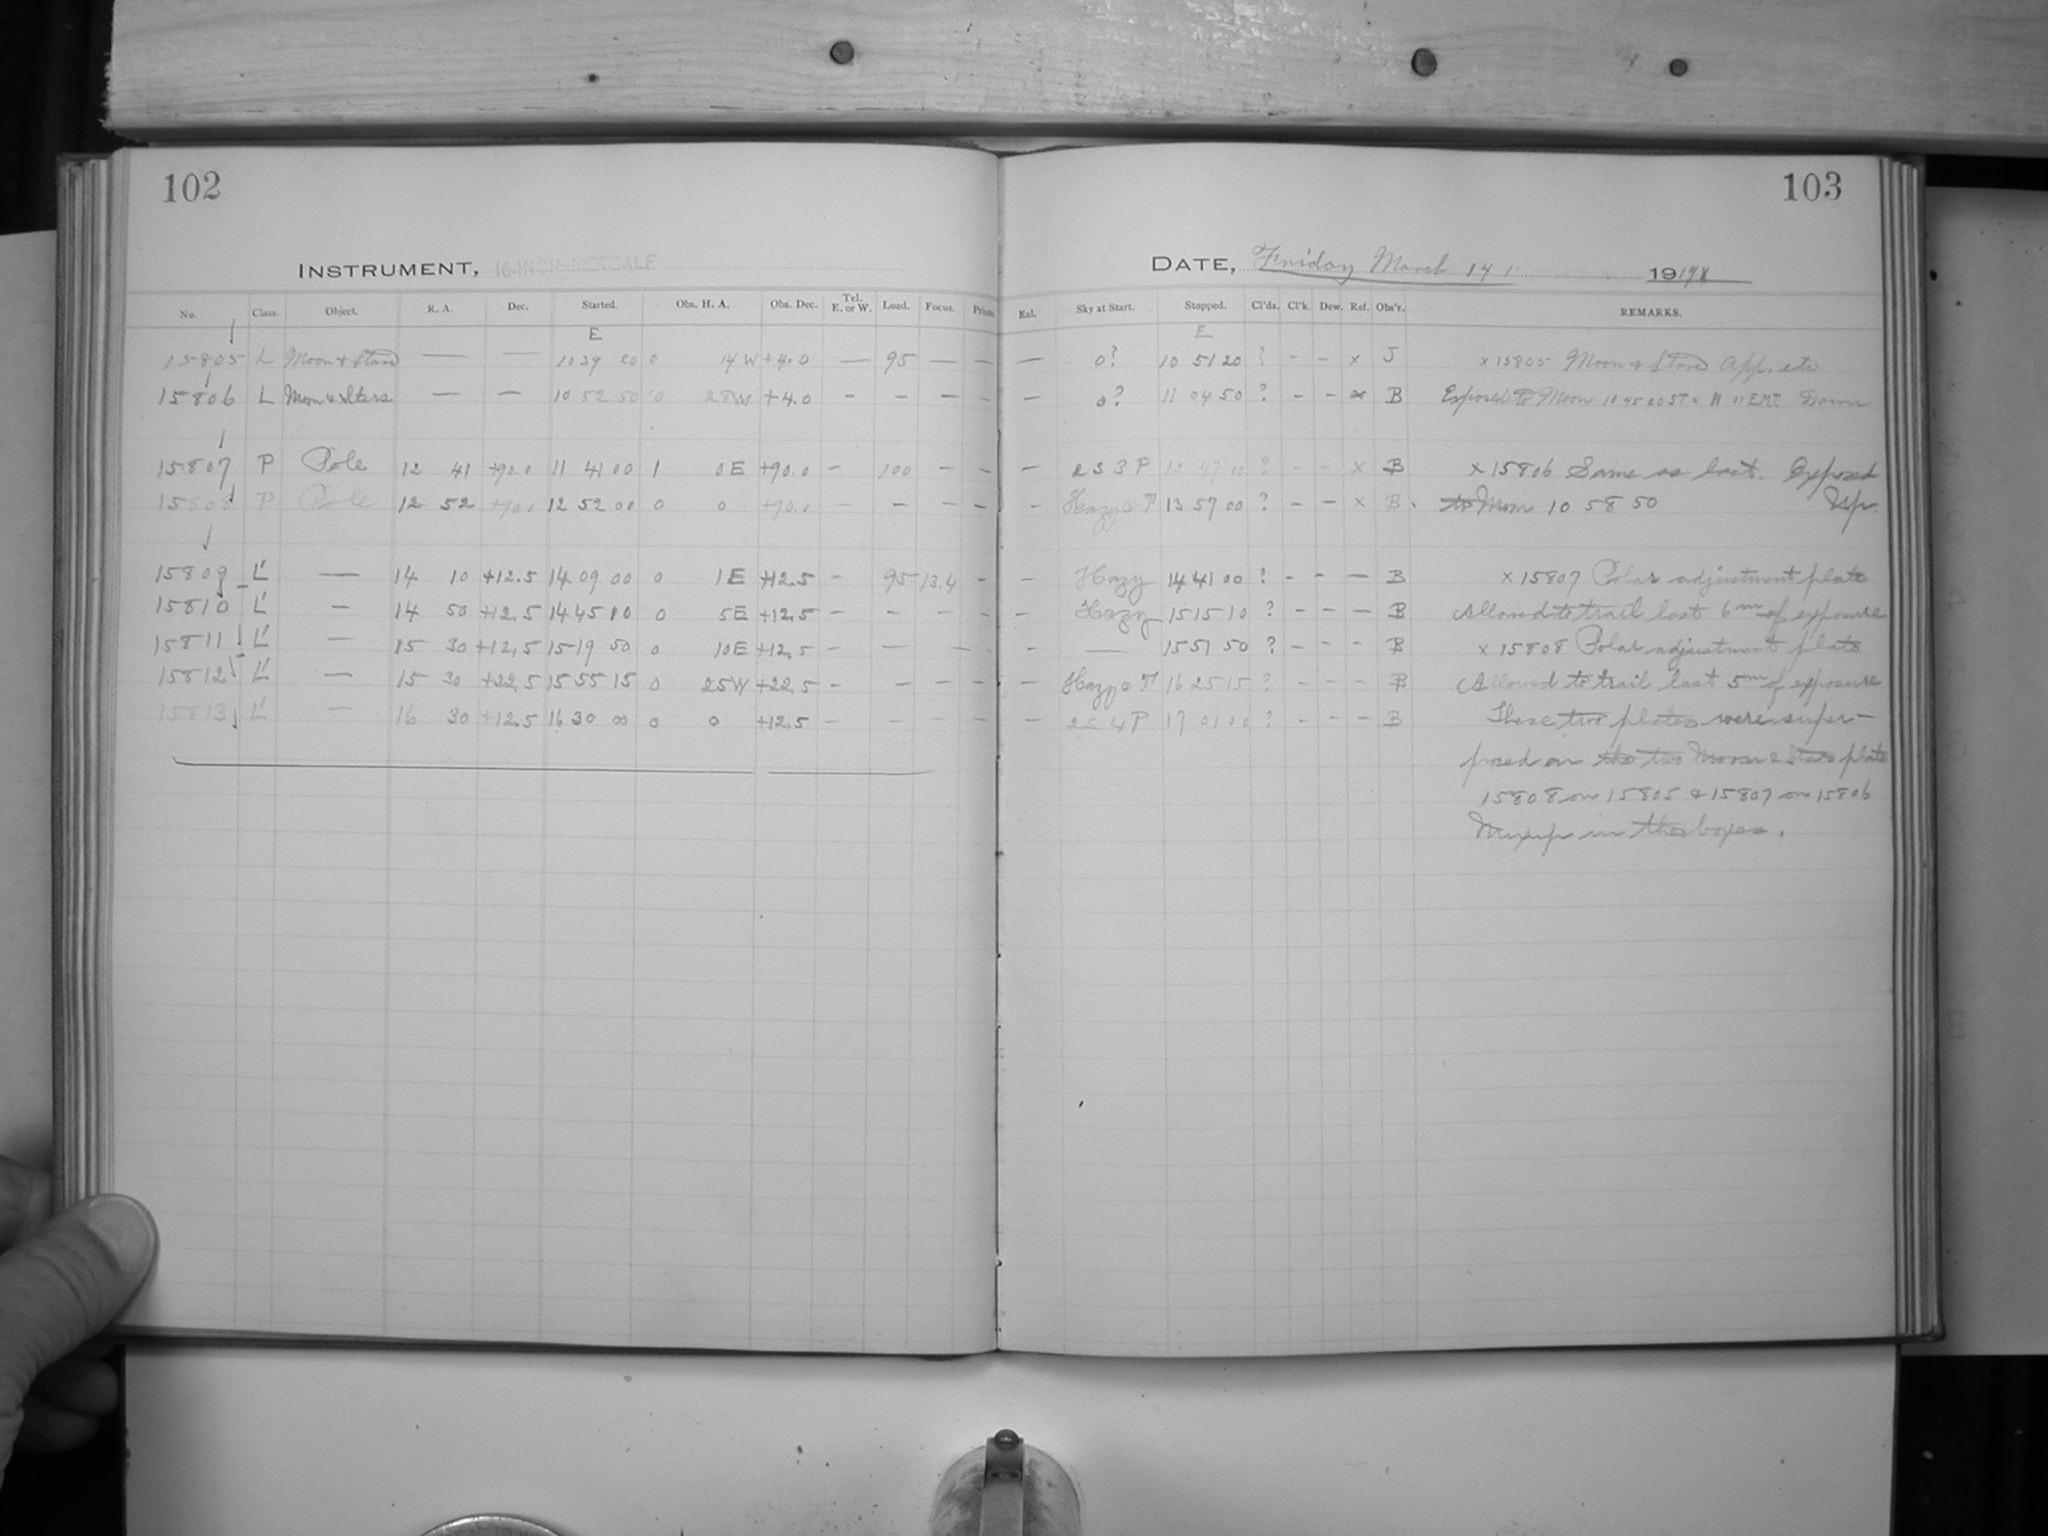 102
INSTRUMENT, 16-INCH METCALF
No. Class. Object. R. A. Dec. Started. Obs. H. A. Obs. Dec. Tel. E. or W. Load. Focus. Prism.
E
15805 L Moon & Stars — — 10 39 20 0 14 W +4.0 — 95 — —
15806 L Moon & Stars — — 10 52 50 0 28 W +4.0 - - - -
15807 P Pole 12 41 +90.0 11 41 00 1 0 E +90.0 - 100 - -
15808 P Pole 12 52 +90.0 12 52 00 0 0 +90.0 - - - -
15809 L' — 14 10 +12.5 14 09 00 0 1 E +12.5 - 95 13.4 -
15810 L' — 14 50 +12.5 14 45 10 0 5 E +12.5 - - - -
15811 L' — 15 30 +12.5 15 19 50 0 10 E +12.5 - - - -
15812 L' — 15 30 +22.5 15 55 15 0 25 W +22.5 - - - -
15813 L' — 16 30 +12.5 16 30 00 0 0 +12.5 - - - -
103
DATE, Friday March 14 19
Sky at Start. Stopped. Cl'ds. Cl'k. Dew. Ref. Obs'r. REMARKS.
E
— 0? 10 51 20 ? - - x J x 15805 Moon & Stars App. etc.
— 0? 11 04 50 ? - - x B Exposed to Moon 10 45 20 ST = E.M.T. Down
— 2 S 3 P 12 47 10 ? - - x B x 15806 Same as last. Exposed
- Hazy & 13 57 00 ? - - x B. to Moon 10 58 50
- Hazy 14 41 00 ? - - — B x 15807 Polar adjustment plate
- Hazy 15 15 10 ? - - — B Allowed to trail last 6m of exposure
- — 15 51 50 ? - - - B x 15808 Polar adjustment plate
— Hazy & 16 25 15 ? - - - B Allowed to trail last 5m of exposure
— 2 S 4 P 17 01 00 ? - - - B These two plates were super-
posed on the two Moon & Stars plate
15808 on 15805 & 15807 on 15806
Mixup in the boxes.